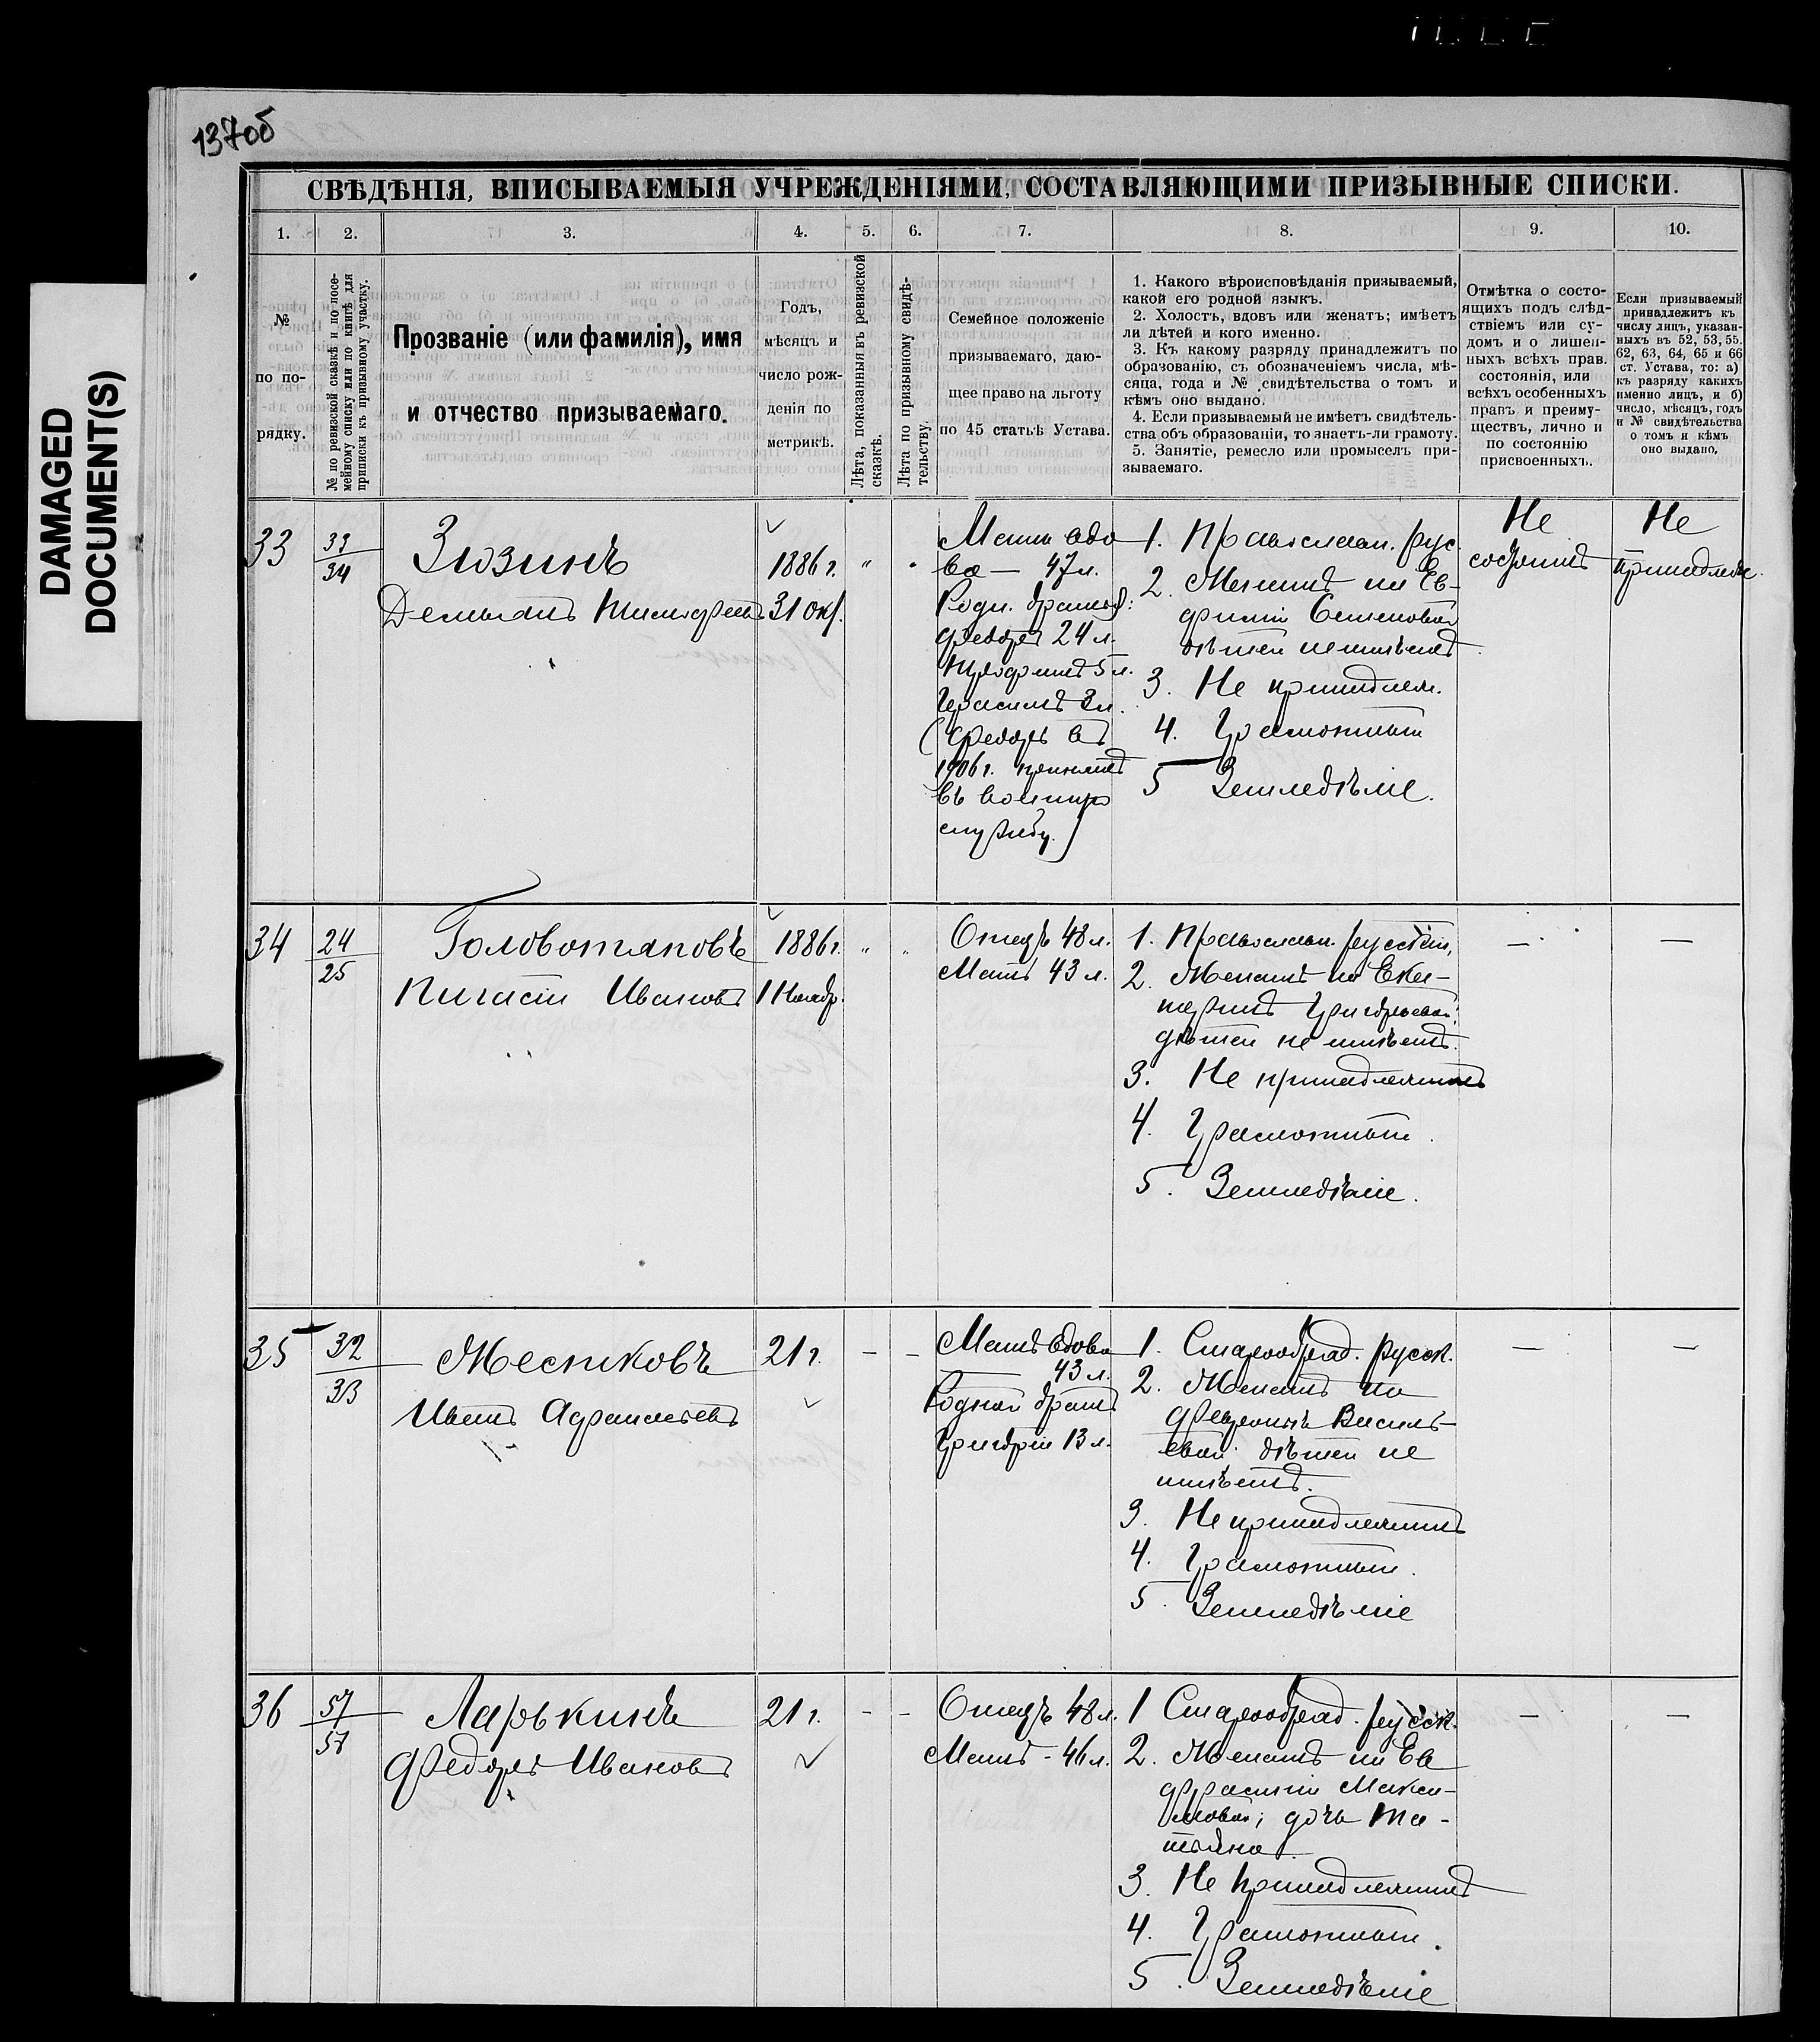 137об
DAMAGED
DOCUMENT(S)
СВѢДѢНІЯ, ВПИСЫВАЕМЫЯ УЧРЕЖДЕНІЯМИ, СОСТАВЛЯЮЩИМИ ПРИЗЫВНЫЕ СПИСКИ.
1. 2. 3. 4. 5. 6. 7. 8. 9. 10.
№
по по-
рядку.
№ по ревизской сказкѣ и по посе-
мейному списку или по книгѣ для
приписки къ призывному участку.
Прозваніе (или фамилія), имя
и отчество призываемаго.
Годъ,
мѣсяцъ и
число рож-
денія по
метрикѣ.
Лѣта, показанныя въ ревизской
сказкѣ.
Лѣта по призывному свидѣ-
тельству.
Семейное положеніе
призываемаго, даю-
щее право на льготу
по 45 статьѣ Устава.
1. Какого вѣроисповѣданія призываемый,
какой его родной языкъ.
2. Холостъ, вдовъ или женатъ; имѣетъ
ли дѣтей и кого именно.
3. Къ какому разряду принадлежитъ по
образованію, съ обозначеніемъ числа, мѣ-
сяца, года и № свидѣтельства о томъ и
кѣмъ оно выдано.
4. Если призываемый не имѣетъ свидѣтель-
ства объ образованіи, то знаетъ-ли грамоту.
5. Занятіе, ремесло или промыселъ при-
зываемаго.
Отмѣтка о состо-
ящихъ подъ слѣд-
ствіемъ или су-
домъ и о лишен-
ныхъ всѣхъ прав.
состоянія, или
всѣхъ особенныхъ
правъ и преиму-
ществъ, лично и
по состоянію
присвоенныхъ.
Если призываемый
принадлежитъ къ
числу лицъ, указан-
ныхъ въ 52, 53, 55.
62, 63, 64, 65 и 66
ст. Устава, то: а)
къ разряду какихъ
именно лицъ, и б)
число, мѣсяцъ, годъ
и № свидѣтельства
о томъ и кѣмъ
оно выдано.
33
33
34
Зюзинъ
Демьянъ Тимофеевъ
1886 г.
31 окт.
Мать вдо
ва — 47 л.
Родн. братья:
Федоръ 24 л.
Трофимъ 5 л.
Герасимъ 3 л.
(Федоръ въ
1906 г. принятъ
въ военную
службу.)
1. Православн. рус.
2. Женатъ на Ев-
фиміи Семеновой
дѣтей не имѣетъ
3. Не принадлеж.
4. Грамотный
5 Земледѣліе.
Не
состоитъ
Не
принадлеж.
34
24
25
Головотяповъ
Пигасій Ивановъ
1886 г.
1 Ноябр.
Отецъ 48 л.
Мать 43 л.
1. Православн. русскій,
2. Женатъ на Ека-
терин Григорьевой,
дѣтей не имѣетъ.
3. Не принадлежитъ
4. Грамотный.
5. Земледѣліе.
— —
35
32
33
Местиковъ
Иванъ
21 г.
– –
Мать вдова
43 л.
Родной братъ
Григорій 13 л.
1. Старообряд. русск.
2. Женатъ на
Василь-
евой дѣтей не
имѣетъ.
3. Не принадлежитъ
4. Грамотный.
5. Земледѣліе
— —
36
57
Ларькинъ
Федоръ Ивановъ
21 г.
– –
Отецъ 48 л.
Мать - 46 л.
1 Старообряд. русск.
2. Женатъ на Ев
Макси-
мовой; дочь Та-
тьяна.
3. Не принадлежитъ
4. Грамотный.
5. Земледѣліе
— —